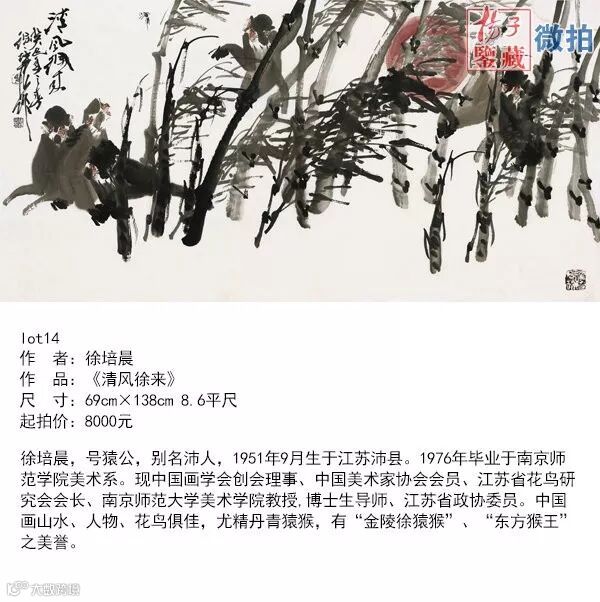 清风徐来
扬子
鉴藏
微拍
lot14
作 者：徐培晨
作 品：《清风徐来》
尺 寸：69cm×138cm 8.6平尺
起拍价：8000元
徐培晨，号猿公，别名沛人，1951年9月生于江苏沛县。1976年毕业于南京师
范学院美术系。现中国画学会创会理事、中国美术家协会会员、江苏省花鸟研
究会会长、南京师范大学美术学院教授,博士生导师、江苏省政协委员。中国
画山水、人物、花鸟俱佳，尤精丹青猿猴，有“金陵徐猿猴”、“东方猴王”
之美誉。
大数跨境